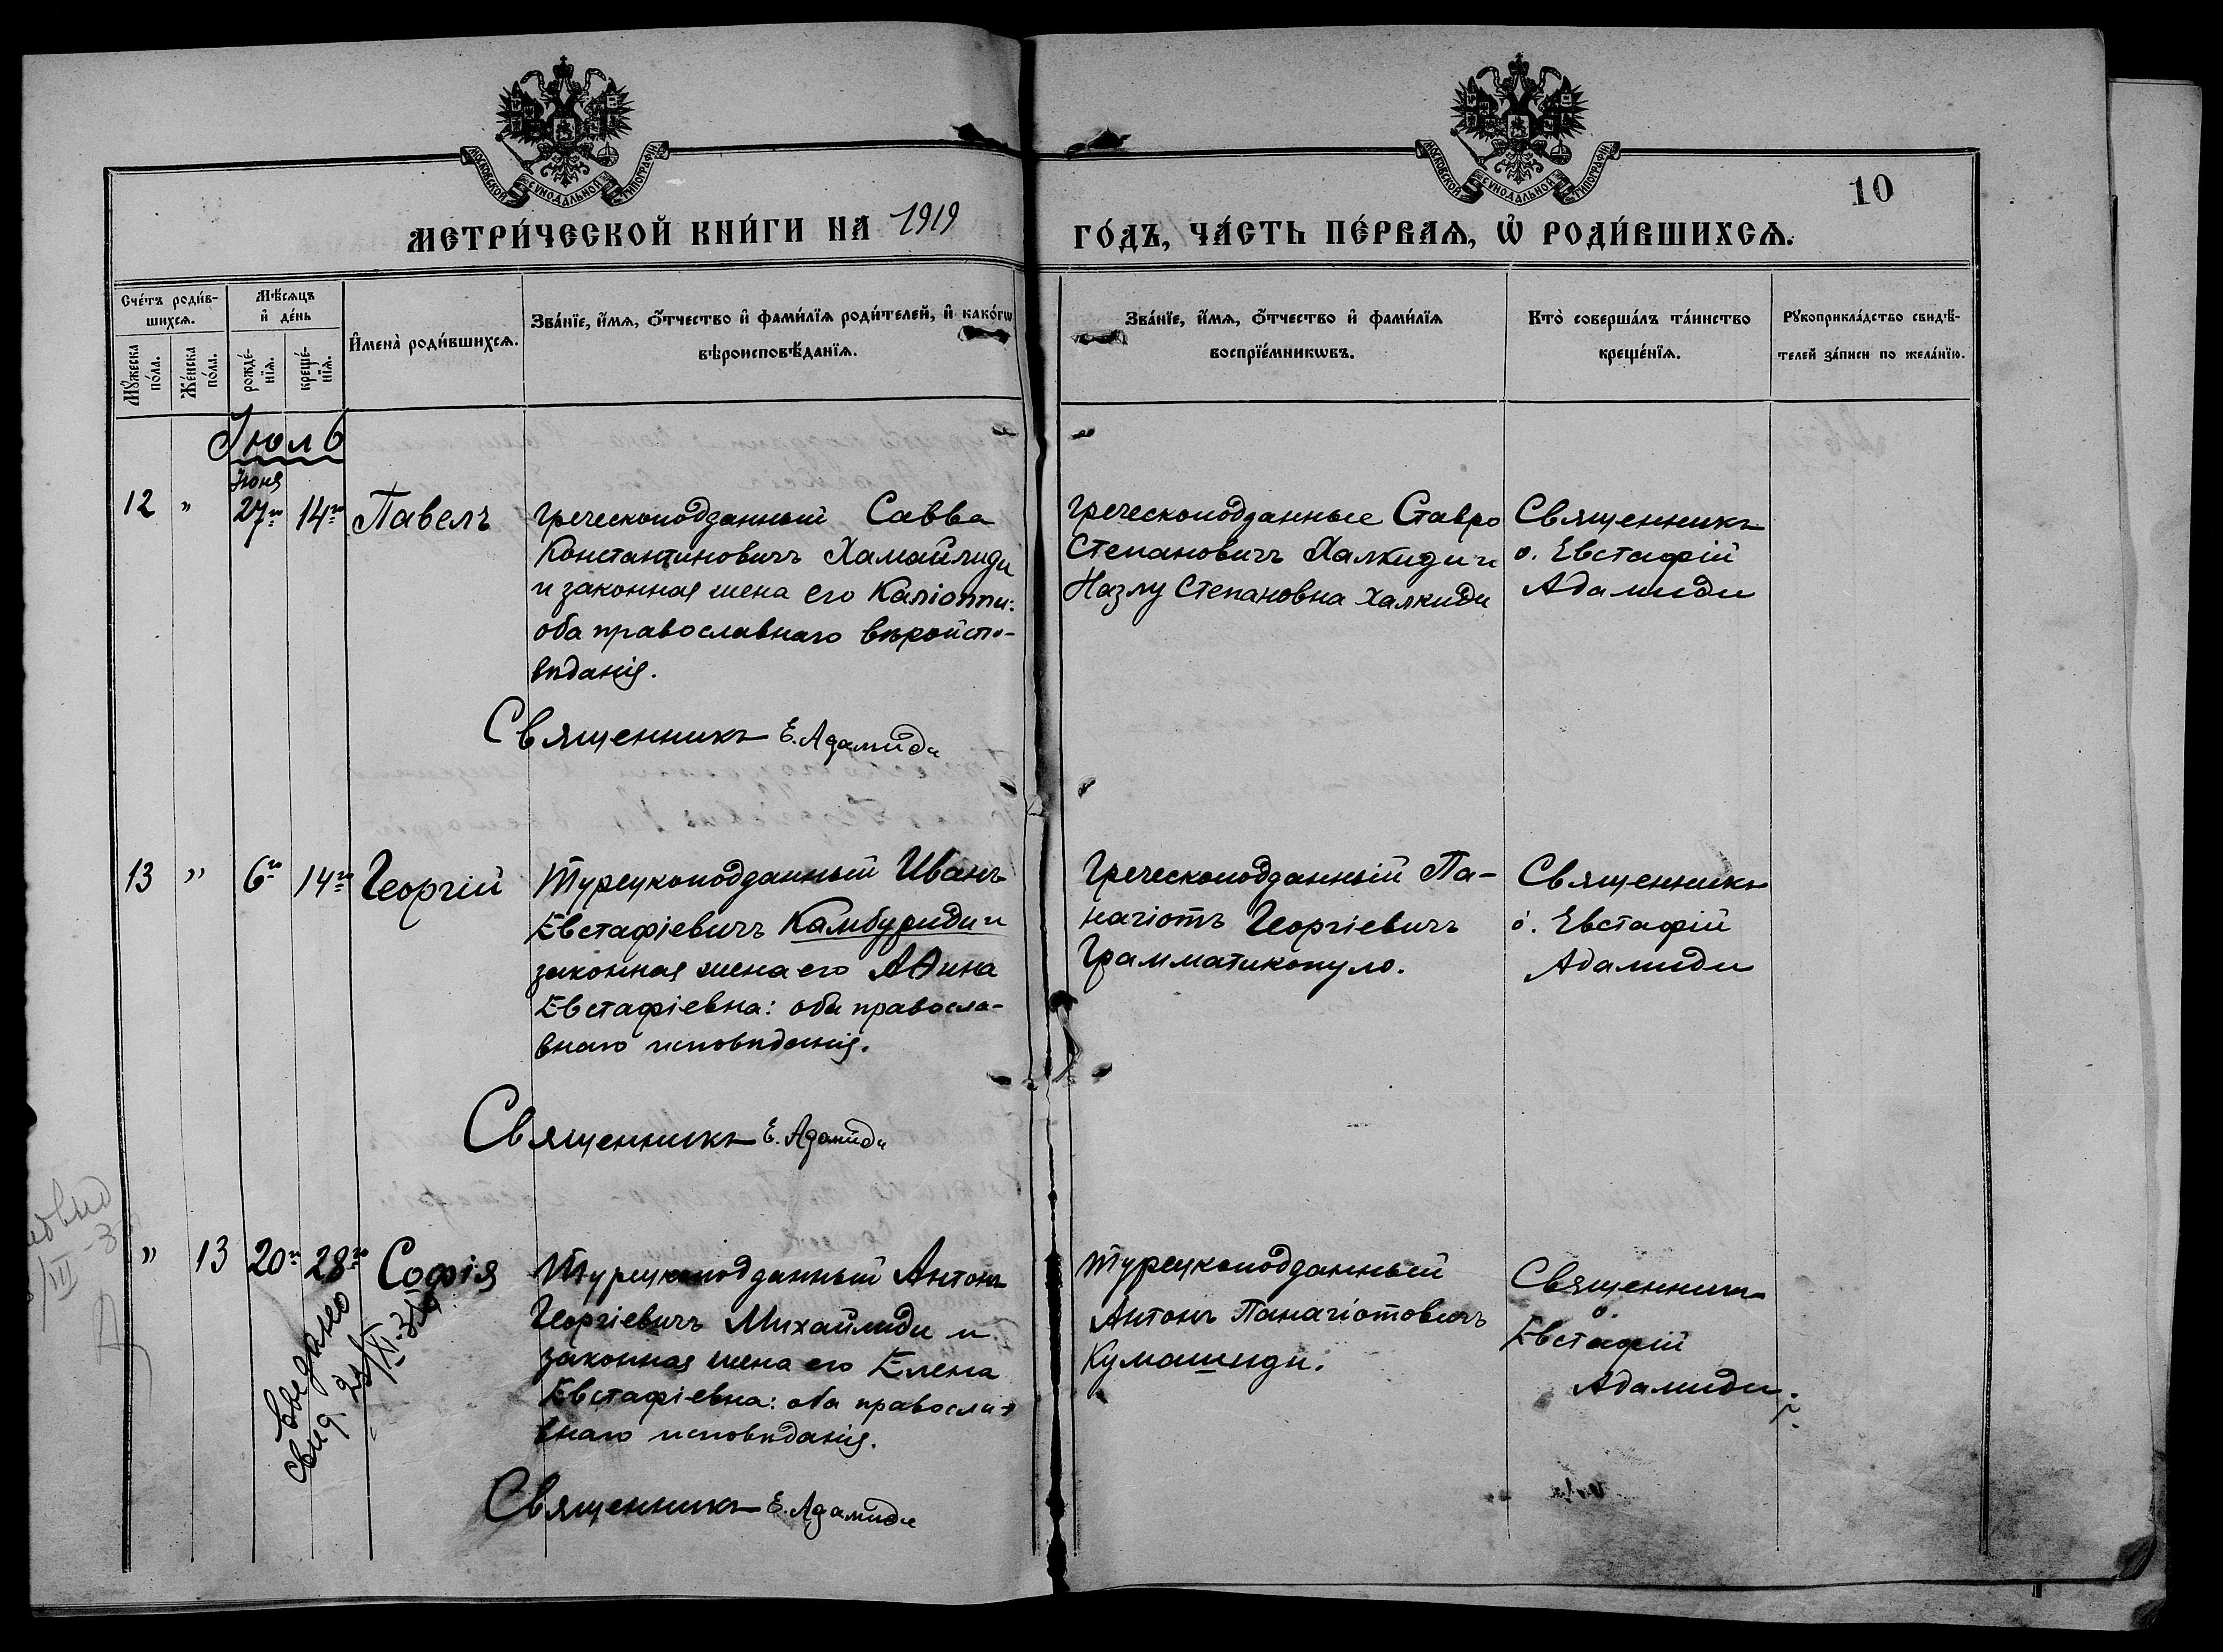 МОСКОВСКОЙ СѴНОДАЛЬНОЙ ТИПОГРАФІИ
МОСКОВСКОЙ СѴНОДАЛЬНОЙ ТИПОГРАФІИ
10
МЕТРИ́ЧЕСКОЙ КНИ́ГИ НА 1919
ГО́ДЪ, ЧА́СТЬ ПЕ́РВАѦ, Ѡ҆ РОДИ́ВШИХСѦ.
Сче́тъ роди́в-
шихсѧ.
Мꙋ́жеска
по́ла.
Же́нска
по́ла.
Мѣ́сѧцъ
и҆ де́нь
рожде́-
нїѧ.
креще́-
нїѧ.
И҆мена̀ роди́вшихсѧ.
Зва́нїе, и҆́мѧ, ѻ҆́тчество и҆ фами́лїѧ роди́телей, и҆ како́гѡ
вѣроисповѣ́данїѧ.
Зва́нїе, и҆́мѧ, ѻ҆́тчество и҆ фами́лїѧ
воспрїе́мникѡвъ.
Кто̀ соверша́лъ та́инство
креще́нїѧ.
Рꙋкоприкла́дство свидѣ́-
телей за́писи по жела́нїю.
Іюль
Іюня
12 " 27го 14го Павелъ
Греческоподданный Савва
Константиновичъ Хамайлиди
и законная жена его Каліопи:
оба православнаго вѣроиспо-
вѣданія.
Греческоподданные Ставро
Степановичъ Халкиди и
Назлу Степановна Халкиди
Священникъ
о. Евстафій
Адамиди
Священникъ Е. Адамиди
13 " 6го 14го Георгій
Турецкоподданный Иванъ
Евстафіевичъ Камбуриди и
законная жена его Аѳина
Евстафіевна: оба правосла-
внаго исповѣданія.
Греческоподданный Па-
нагіотъ Георгіевичъ
Грамматикопуло.
Священникъ
о. Евстафій
Адамиди
Священникъ Е. Адамиди
" 13 20го 28го Софія
Турецкоподданный Антонъ
Георгіевичъ Михайлиди и
законная жена его Елена
Евстафіевна: оба правосла-
внаго исповѣданія.
Турецкоподданный
Антонъ Панагіотовичъ
Кумашиди.
Священникъ
о.
Евстафій
Адамиди.
Священникъ Е. Адамиди
свид.